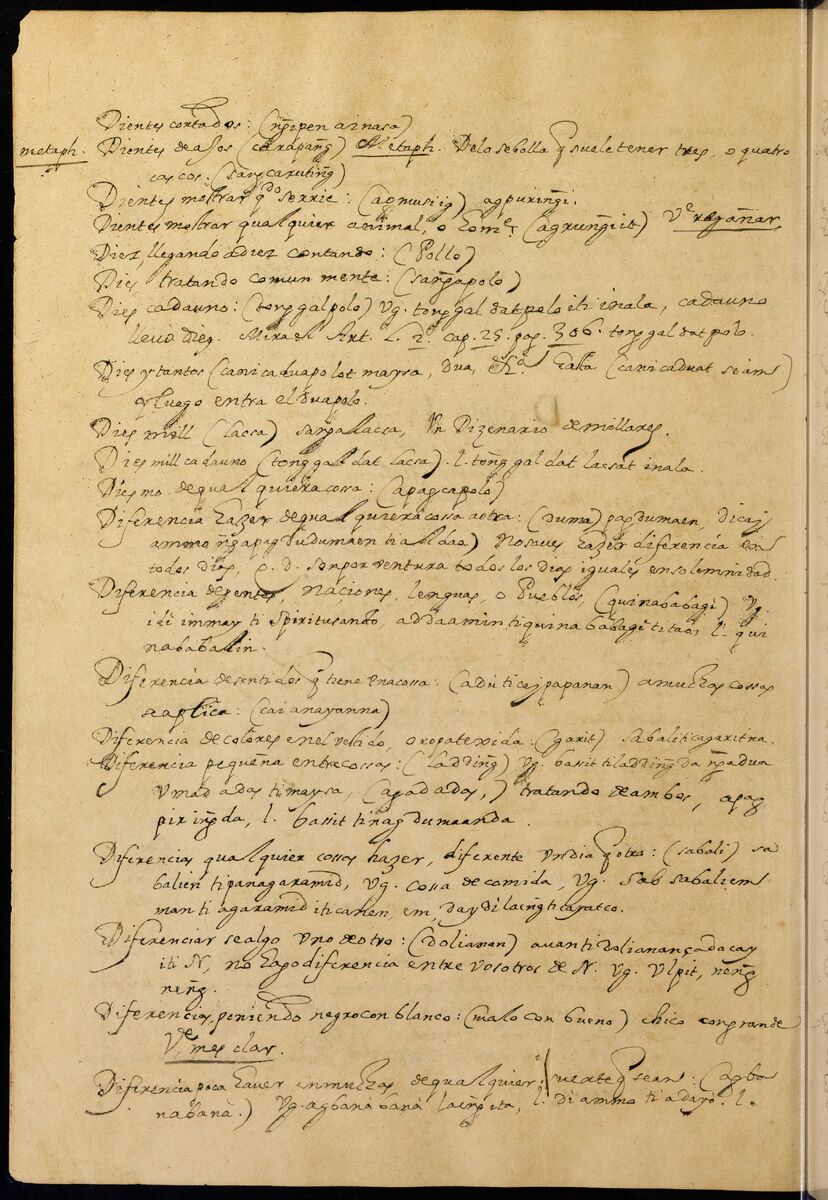 Dientes cortados: (ngipen a inasa)
metaph. Dientes de ajos (carapang) Metaph. De la sebolla q suele tener tres, o quatro
cascos. (sangcaruting)
Dientes mostrar qdo se rrie: (agmusiig) agpuringi.
Dientes mostrar qualquier animal, o home. (agrungiit) Ve regañar,
Diez llegando a diez contando: (Pollo)
Dies, tratando comun mente: (sangapolo)
Dies cada uno: (tonggal polo) Vg. tonggal dat polo iti inala, cada uno
llevo dies. Mira el Art. L. 2o. cap. 25. pag. 306. tonggal dat polo.
Dies y tantos (canicadua polot maysa, dua, &a. hasta (canicaduat siam)
y luego entra el dua polo.
Dies mill (lacsa) sangalacsa, Un Dizenario de millares.
Dies mill cada uno (tonggal dat lacsa). l. tonggal dat lacsat inala.
Diesmo de qualquiera cossa: (apagcapolo)
Diferencia hazer de qualquiera cossa a otra: (duma) pagdumaen, dicaj
ammo nga pagdudumaen ti aldao) No saves hazer diferencia en
todos dias, q. d. son por ventura todos los dias iguales en solemnidad.
Diferencia de gentes, naciones, lenguas, o Pueblos, (quinababagi) Vg.
idi immay ti Spiritu santo, adda amin ti quinababagi ti tao, l. qui
nabaalin.
Diferencia de sentidos q tiene una cossa: (adu ti cajpapanan) a muchas cossas
se aplica: (caianayanna)
Diferencia de colores en el vestido, o ropa texida: (garit) sabali ti cagaritna.
Diferencia pequeña entre cossas: (ladding) Vg. bassit ti ladding da nga dua
Umad adas ti maysa, (agadadas,) tratando de ambos, apag
piring da, l. bassit ti nagdumaan da.
Diferencias qualquier cossa hazer, diferente un dia q otro: (sabali) sa
balien ti panagaramid, Vg. cossa de comida, Vg. sab sabaliem
man ti agaramid iti canen, em, day dilaeng ti cayatco.
Diferenciar se algo uno de otro: (dolianan) auan ti dolianan ça dacay
iti N, no hago diferencia entre vosotros de N. Vg. Ulpit, neng
neng.
Diferencias, poniendo negro con blanco: (malo con bueno) chico con grande
Ve, mesclar.
Diferencia poca haver en muchas de qualquier suerte q sean: (agba
nabana.) Vg. agbana bana laeng ita, l. di ammo ti adayo. l.